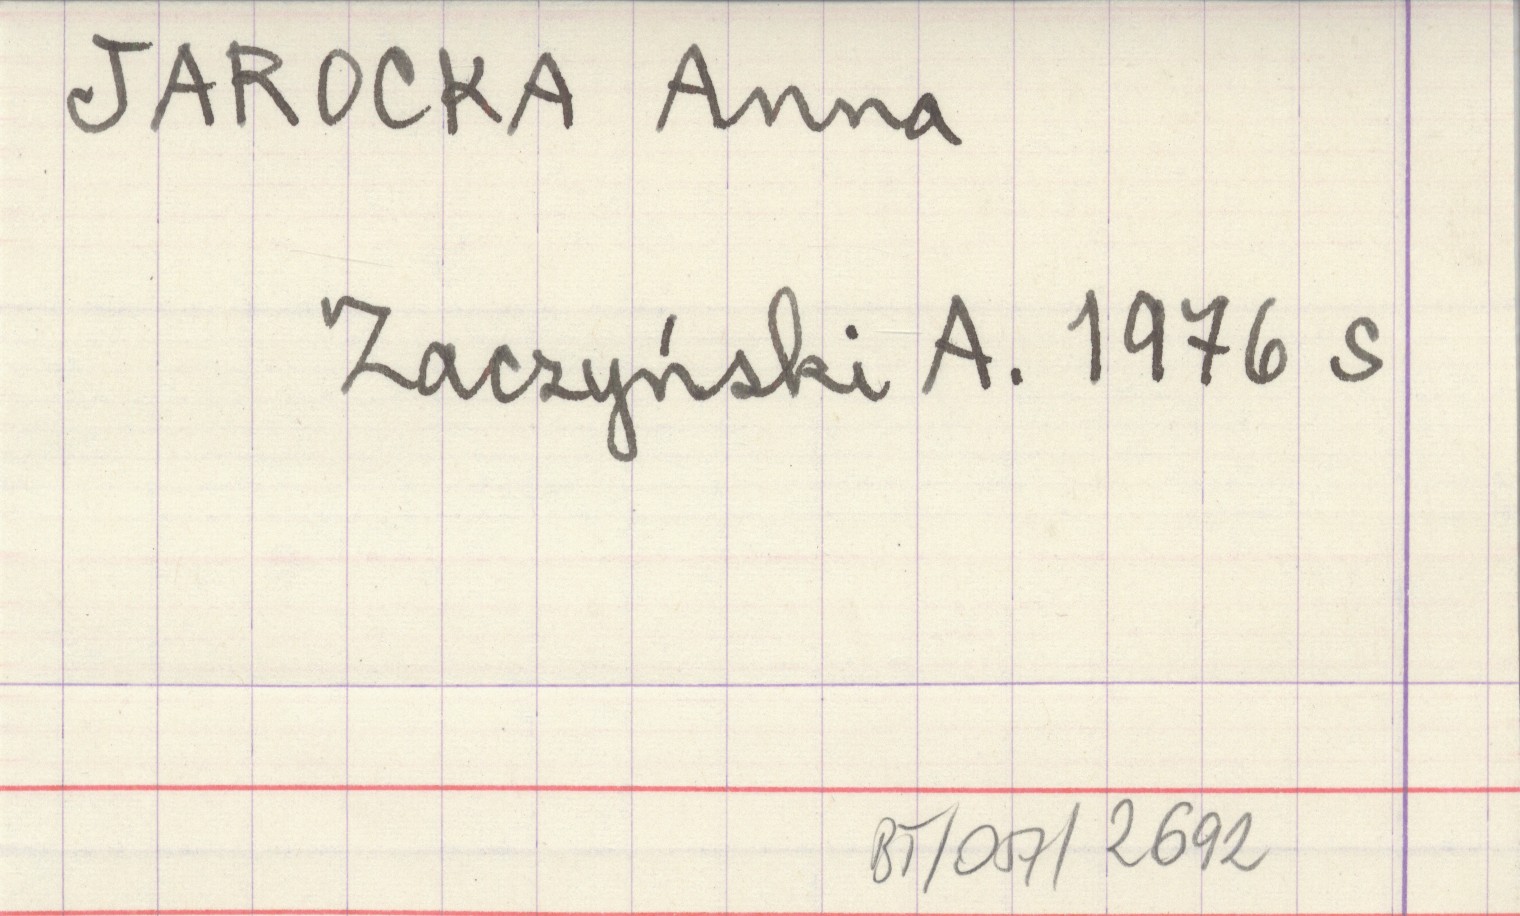 JAROCKA Anna
Zaczyński A. 1976 s
BT/057/2692